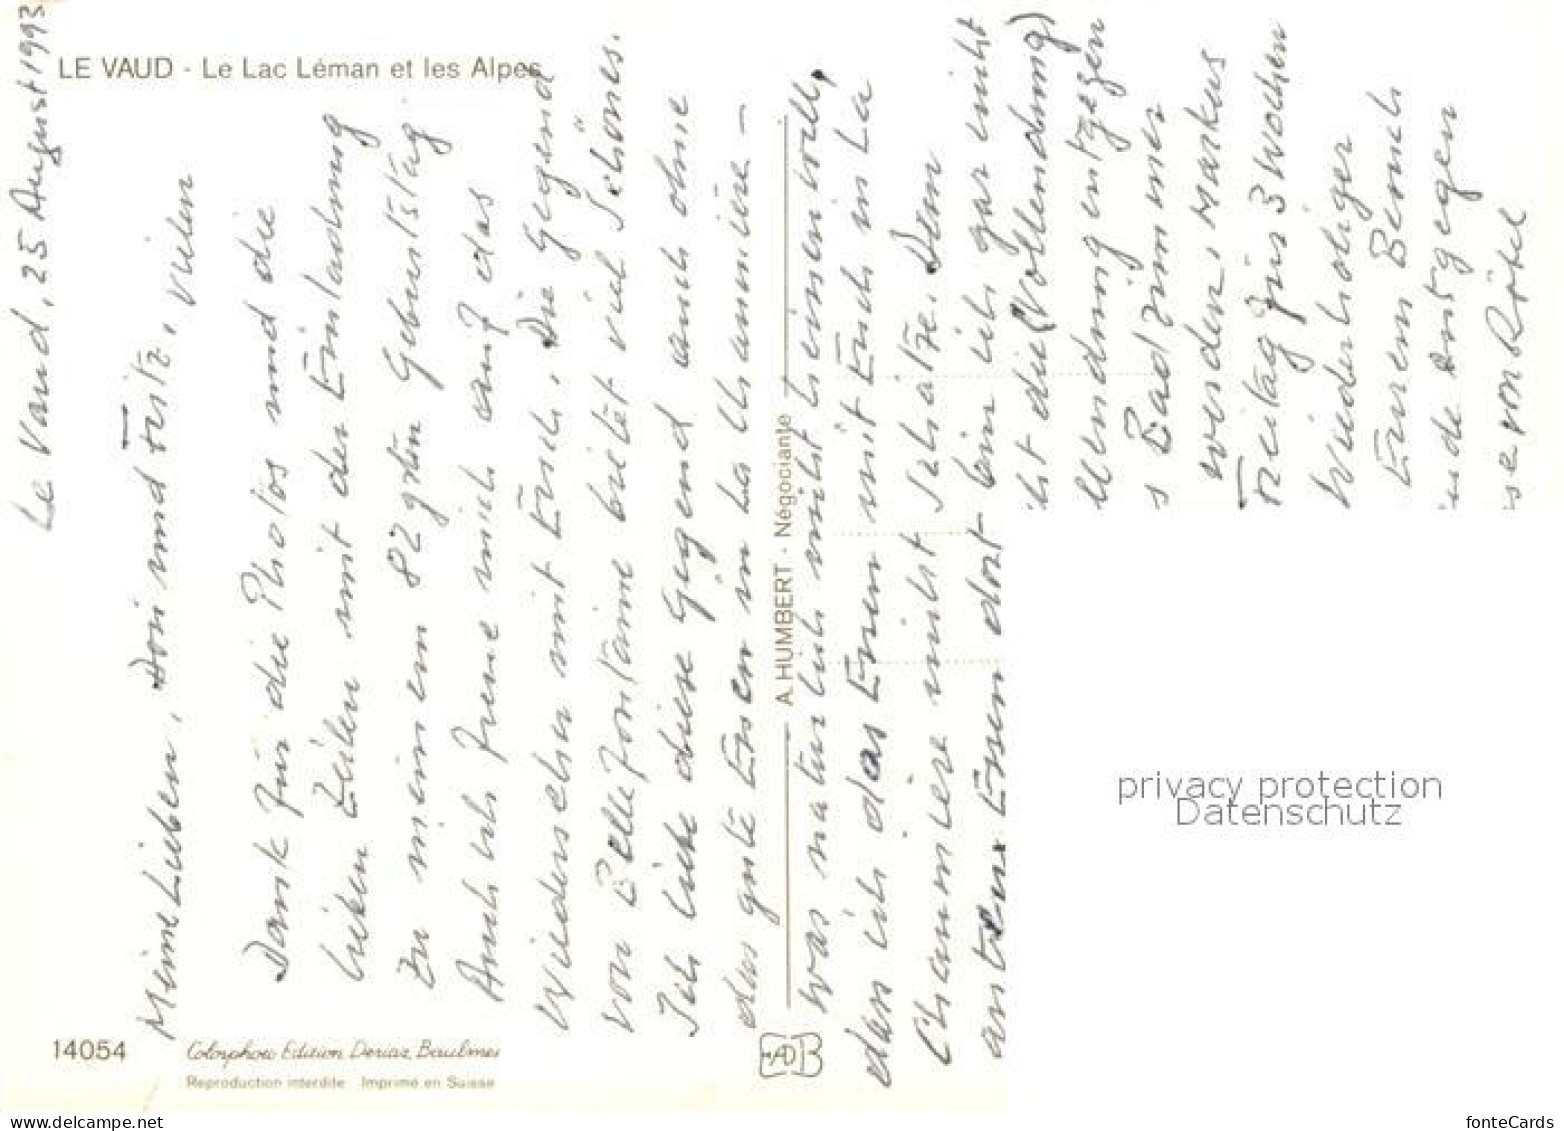 LE VAUD - Le Lac Léman et les Alpes
Le Vaud, 25 August 1993
Meine Lieben, Dori und Fritz, vielen
Dank für die Photos und die
lieben Zeilen mit der Einladung
zu meinem 82 gsten Geburtstag.
Auch ich freue mich auf das
Wiedersehen mit Euch. Die Gegend
von Bellefontaine bietet viel Schönes.
Ich liebe diese Gegend auch ohne
das gute Essen in La Chaumière –
was natürlich nicht heissen will,
dass ich das Essen mit Euch in La
Chaumière nicht schätze. Dem
Essen dort bin ich gar nicht
die (Vollendung)
entgegen
Badzimmer
werden, Markus
Freitag für 3 Wochen
Wiederholiger
Eurem Besuch
von Rösel
A. HUMBERT - Négociante
14054
Colorphoto Edition Deriaz, Baulmes
Reproduction interdite Imprimé en Suisse
privacy protection
Datenschutz
delcampe.net
fonteCards